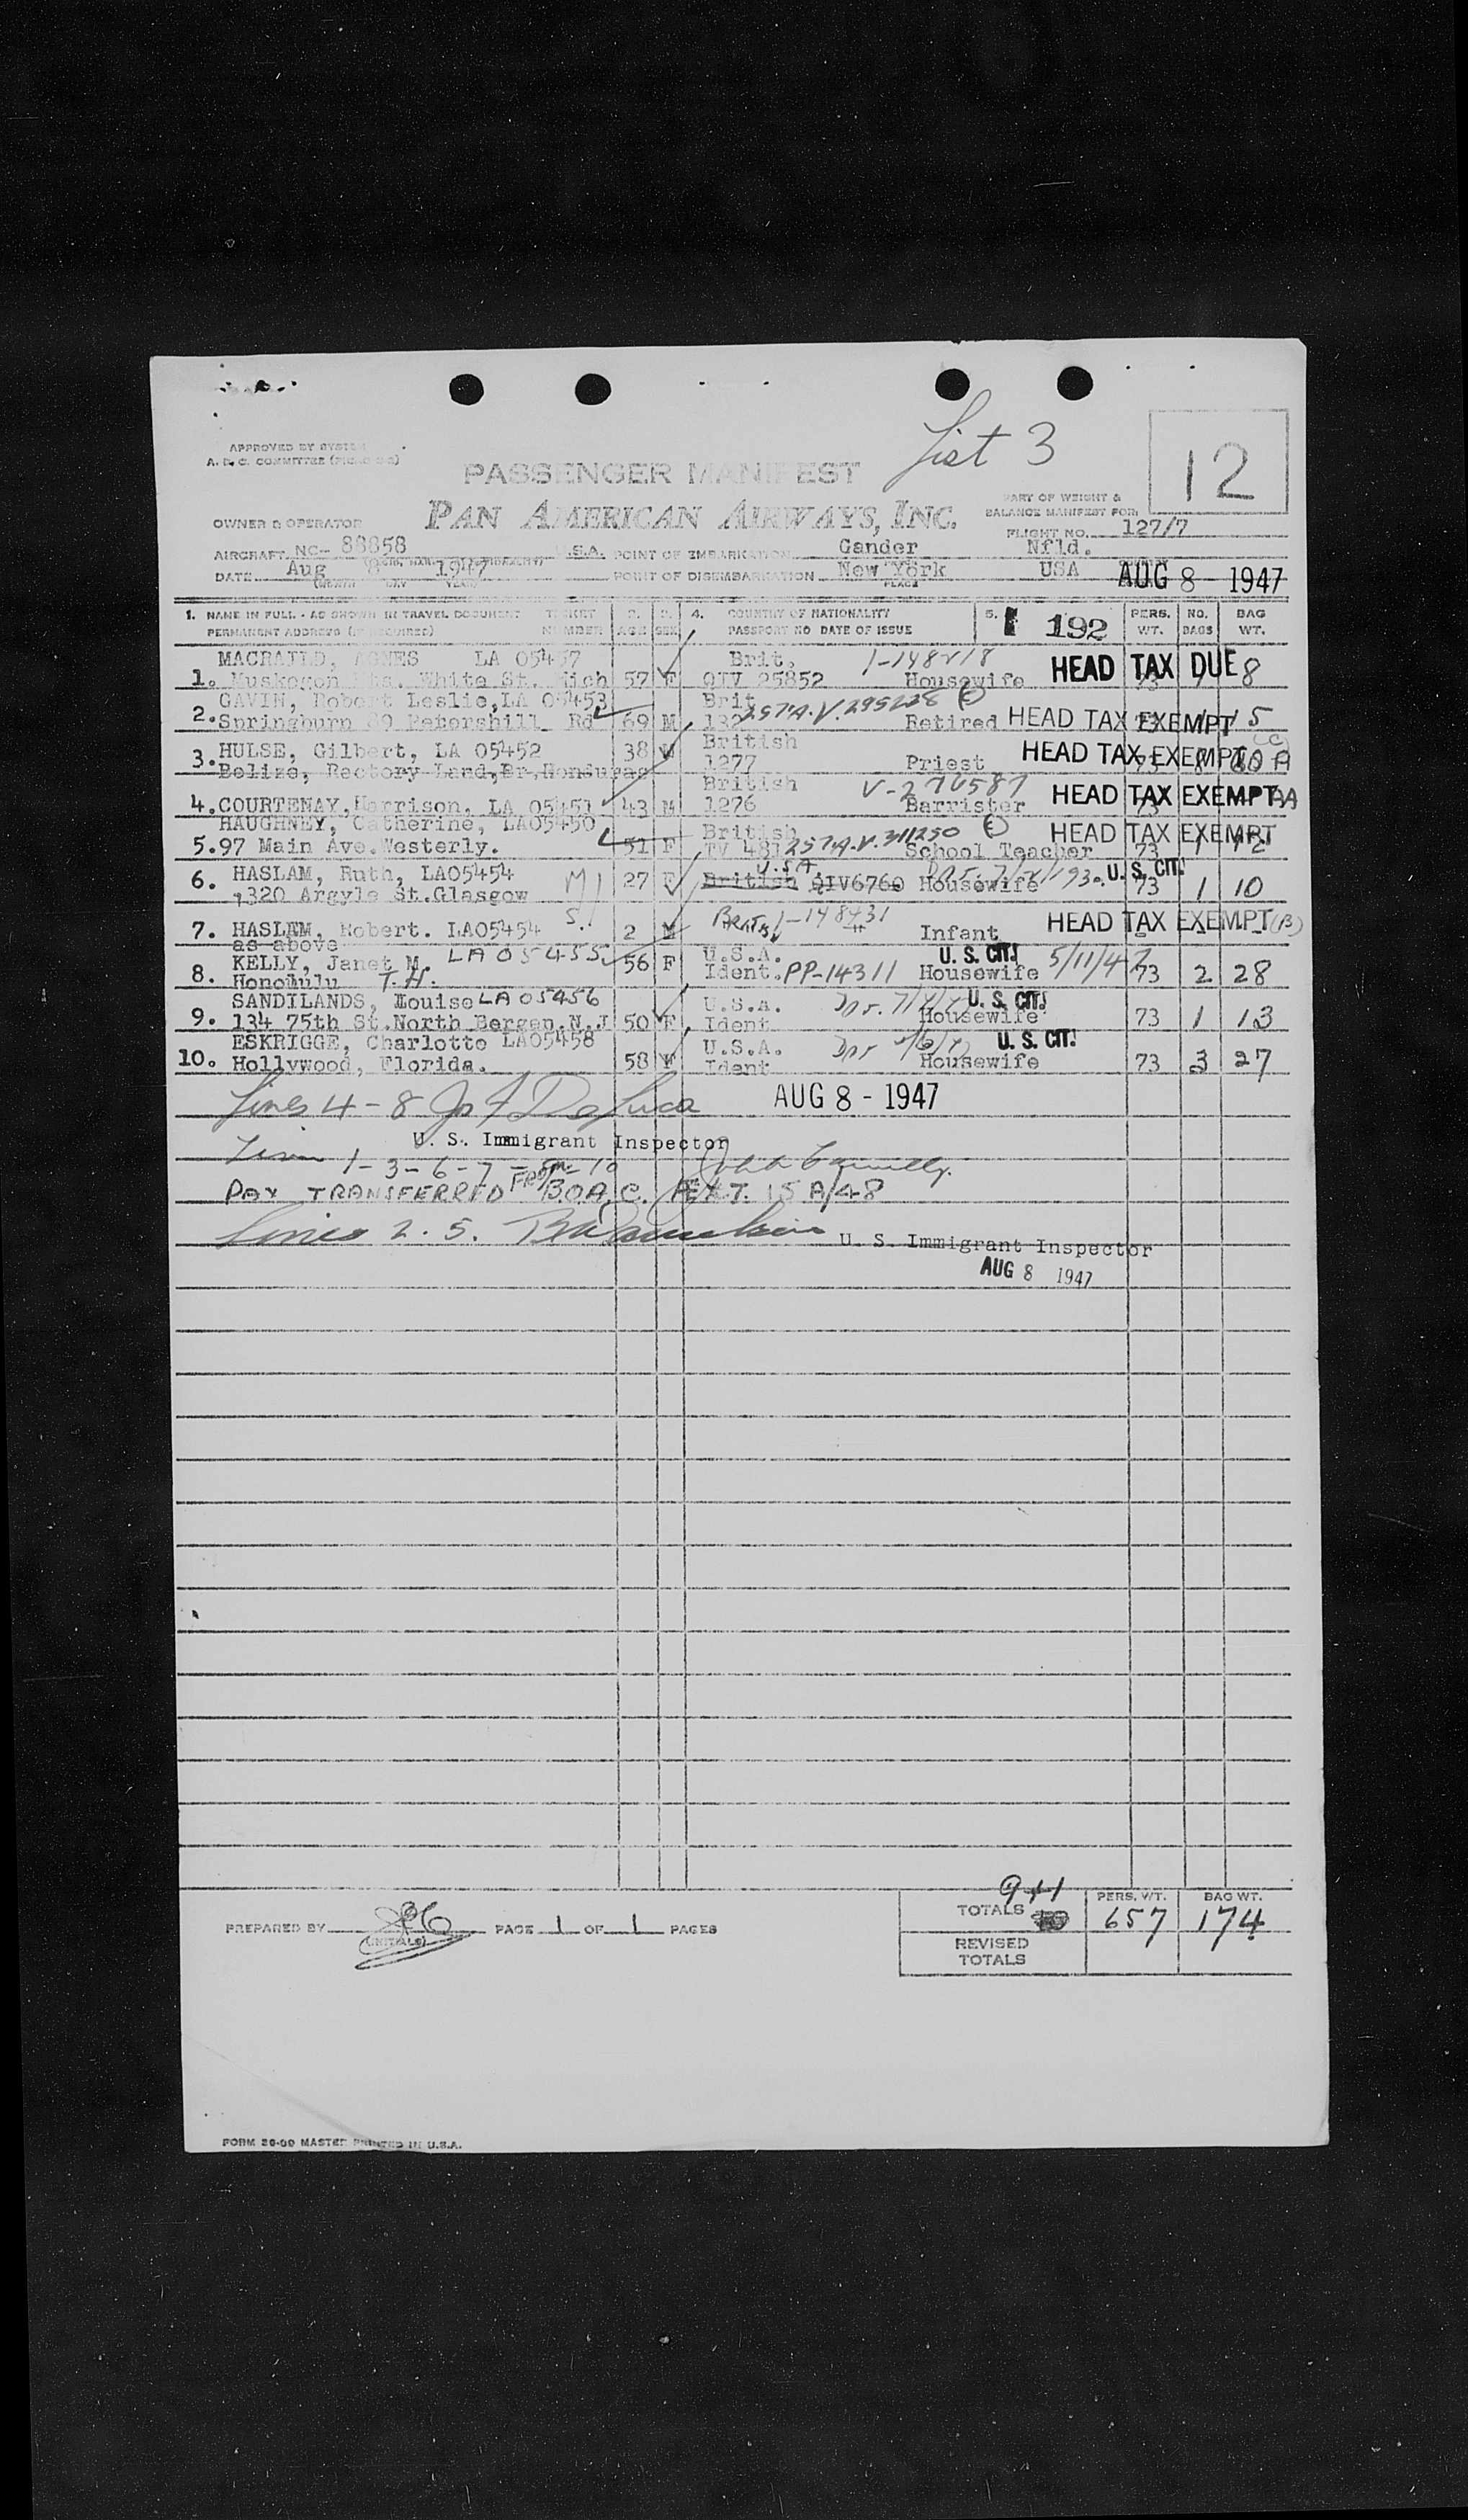 List 3
12
APPROVED BY
A. D. C. COMMITTEE
PASSENGER MANIFEST
PART OF WEIGHT &
BALANCE MANIFEST FOR:
PAN AMERICAN AIRWAYS, INC.
OWNER & OPERATOR
FLIGHT NO. 127/7
AIRCRAFT NC- 88858 U.S.A. POINT OF EMBARKATION Gander Nfld.
DATE Aug 8 1947 POINT OF DISEMBARKATION New York USA AUG 8 - 1947
MONTH DAY YEAR PLACE
1. NAME IN FULL - AS SHOWN IN TRAVEL DOCUMENT TICKET 2. 3. 4. COUNTRY OF NATIONALITY 5. 192 PERS. NO. BAG
PERMANENT ADDRESS (IF REQUIRED) NUMBER AGE SEX PASSPORT NO DATE OF ISSUE WT. BAGS WT.
MACRAILD, AGNES LA 05457 Brit. 1-148218 HEAD TAX DUE
1. Muskogon White St. Mich 57 F QIV 25852 Housewife 73 8
GAVIN, Robert Leslie, LA 05453 Brit 257A.V.295228
2. Springburn 89 Petershill Rd 69 M 132 Retired HEAD TAX EXEMPT 15
3. HULSE, Gilbert, LA 05452 38 M British HEAD TAX EXEMPT (C)
Belize, Rectory Land, Br. Honduras 1277 Priest
British V-276587
4. COURTENAY, Harrison, LA 05451 43 M 1276 Barrister HEAD TAX EXEMPT
HAUGHNEY, Catherine, LA05450 British 257A.V.311250 HEAD TAX EXEMPT
5. 97 Main Ave. Westerly. 51 F TV 481 School Teacher 73 1 12
6. HASLAM, Ruth, LA05454 27 F British U.S.A. QIV6760 Housewife U. S. CIT. 73 1 10
320 Argyle St. Glasgow
7. HASLAM, Robert. LA05454 2 M British 1-148431 Infant HEAD TAX EXEMPT (B)
as above
KELLY, Janet M. LA05455 56 F U.S.A. U. S. CIT. 5/11/47
8. Honolulu T.H. Ident. PP-14311 Housewife 73 2 28
SANDILANDS, Louise LA05456 U.S.A. U. S. CIT.
9. 134 75th St. North Bergen, N.J 50 F Ident Housewife 73 1 13
ESKRIGGE, Charlotte LA05458 U.S.A. U. S. CIT.
10. Hollywood, Florida. 58 F Ident Housewife 73 3 27
Lines 4 - 8 Jos F DeLuca AUG 8 - 1947
U. S. Immigrant Inspector
1-3-6-7-9-10 John Connelly.
PAX TRANSFERRED FROM B.O.A.C. FLT. 15 A/48
Lines 2. 5.
U. S. Immigrant Inspector
AUG 8 1947
9+1
TOTALS PERS. WT. 657 BAG WT. 174
PREPARED BY (INITIALS) PAGE 1 OF 1 PAGES
REVISED
TOTALS
FORM 20-00 MASTER PRINTED IN U.S.A.